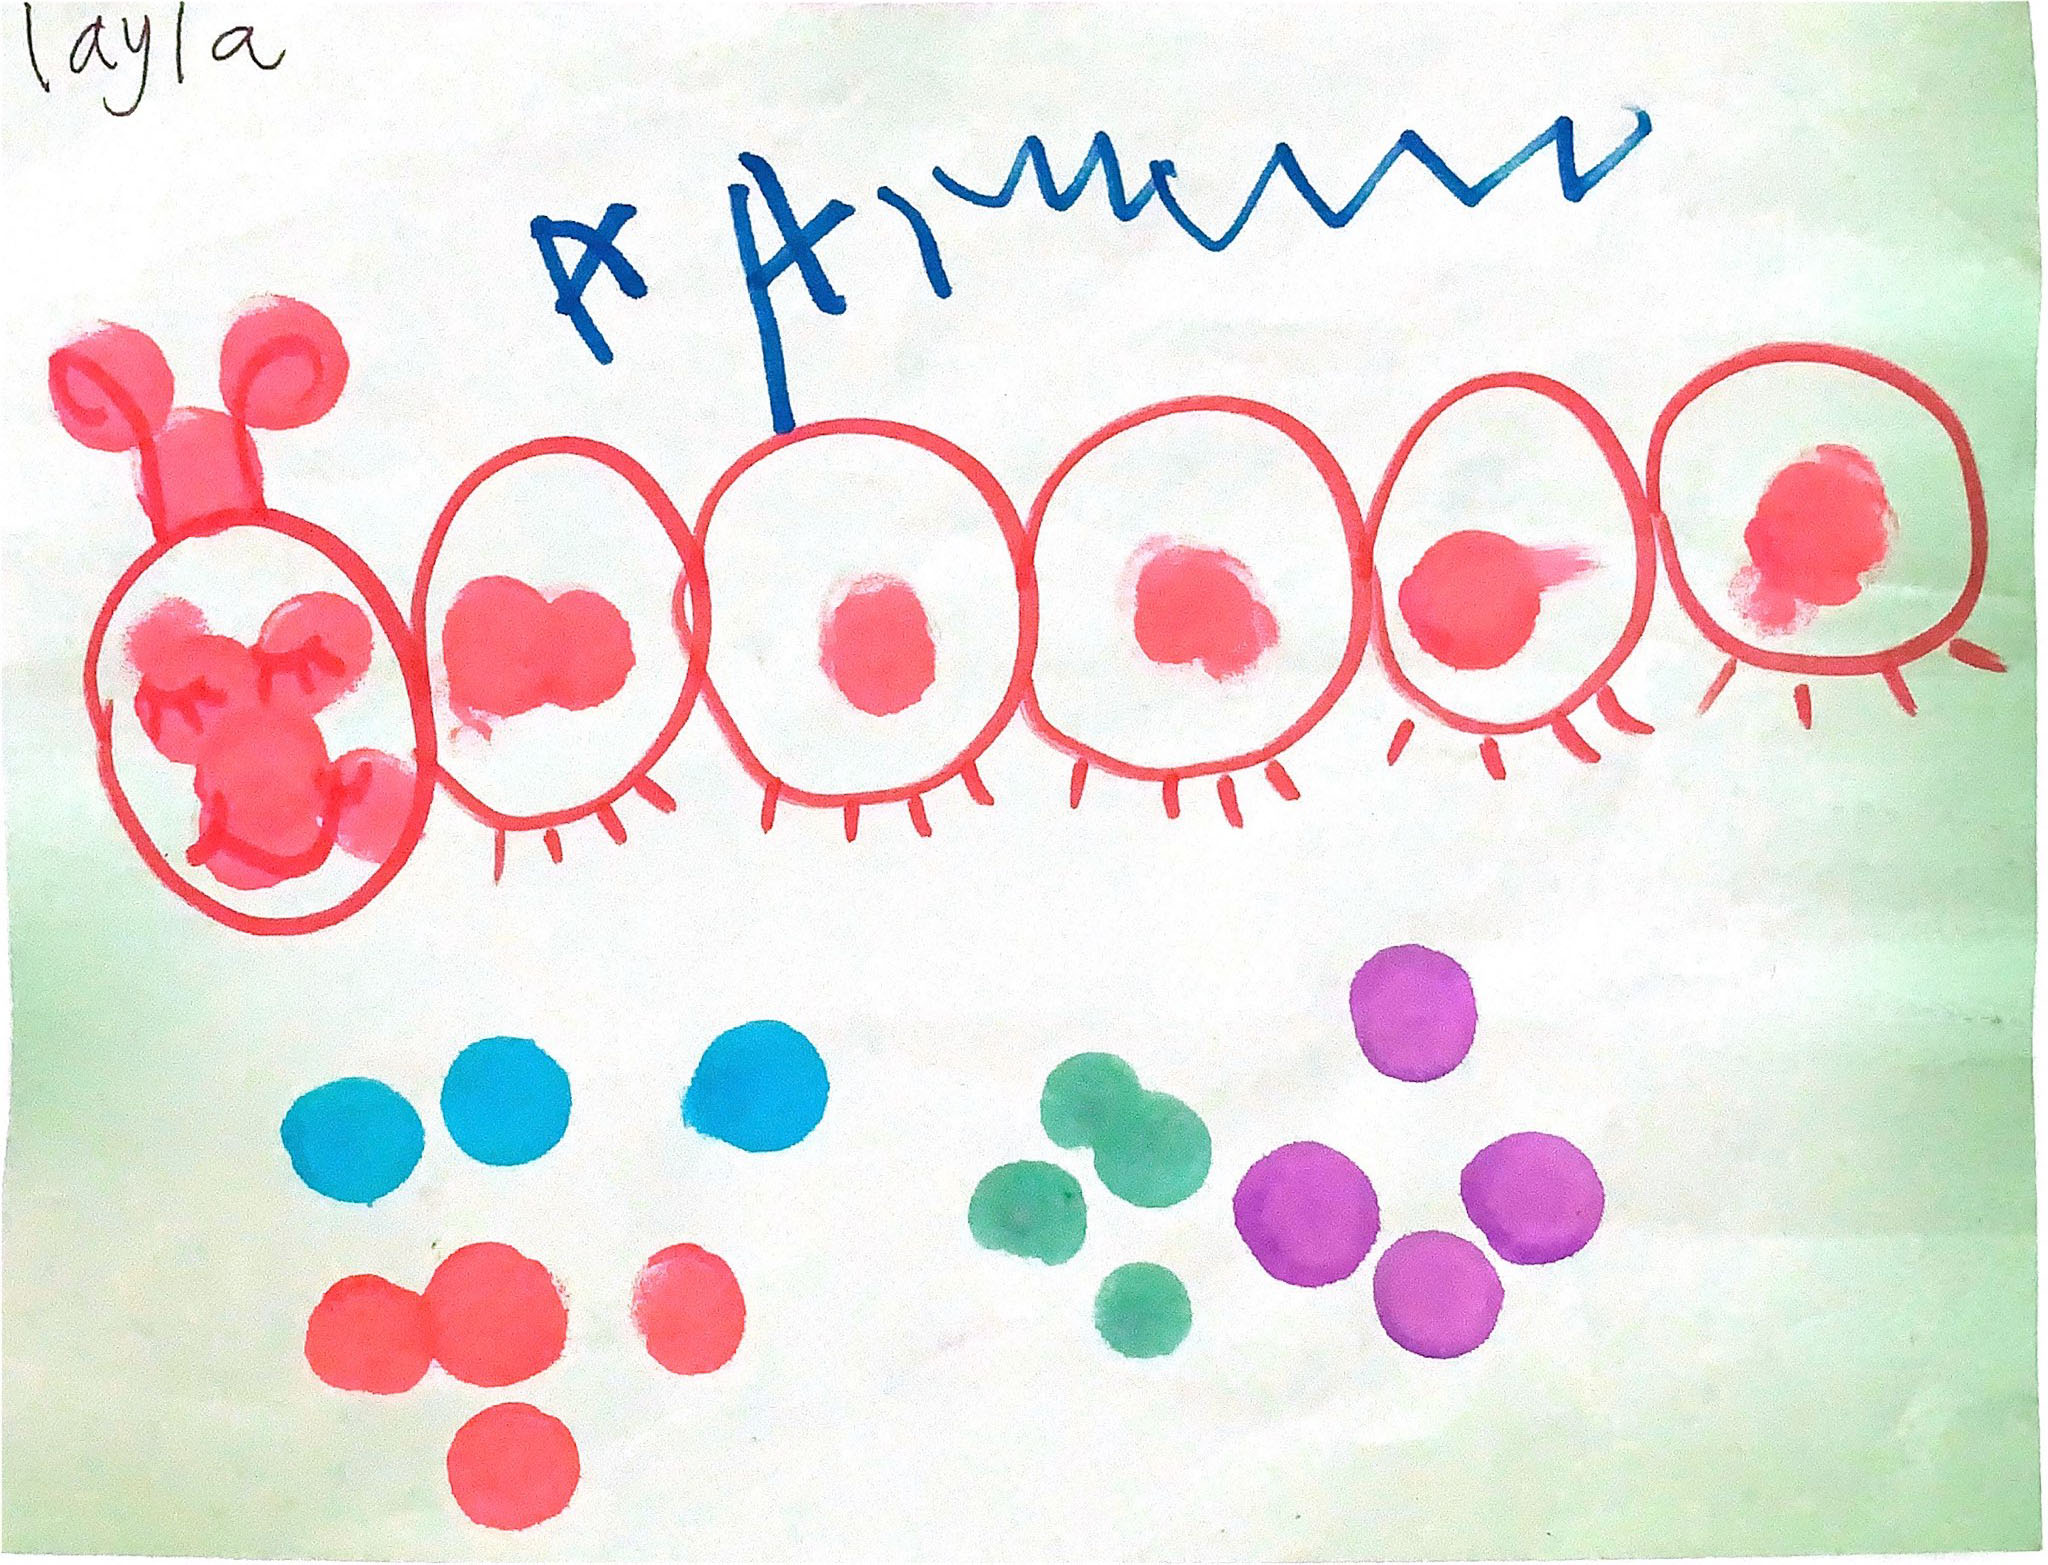 layla
A A